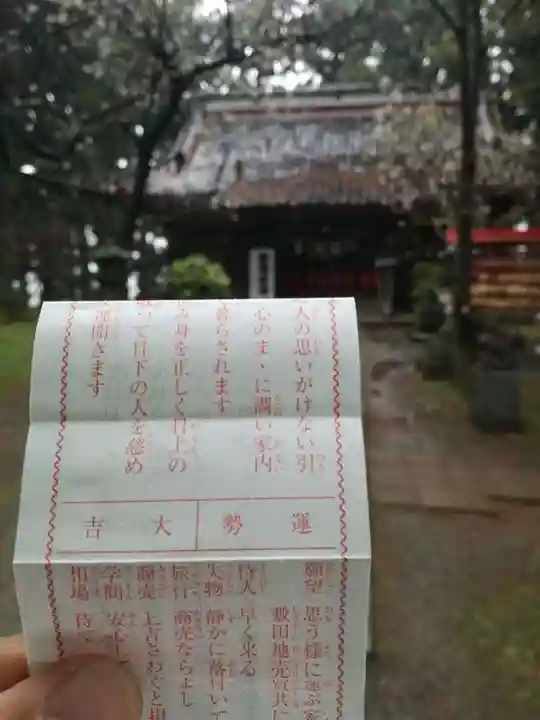 人の思いがけない引
心のまゝに調い家内
暮らされます
身を正しく目上の
って目下の人を慈め
運開きます
運勢 大吉
願望 思う様に運ぶ家
敷田地売買共に
待人 早く来る
失物 静かに落付いて
旅行 商売ならよし
商売 上吉さわぐと損
学問 安心し
相場 待て